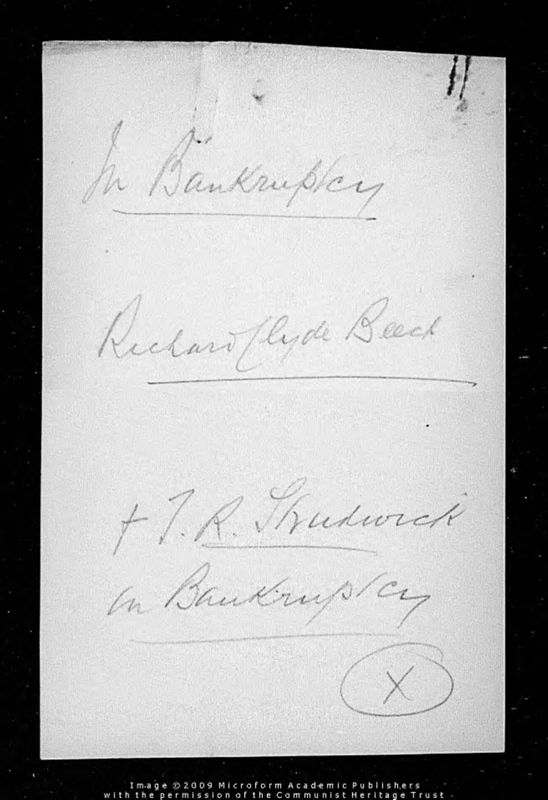 In Bankruptcy
Richard Clyde Beech
+ T. R. Strudwick
in Bankruptcy
X
Image ©2009 Microform Academic Publishers
with the permission of the Communist Heritage Trust